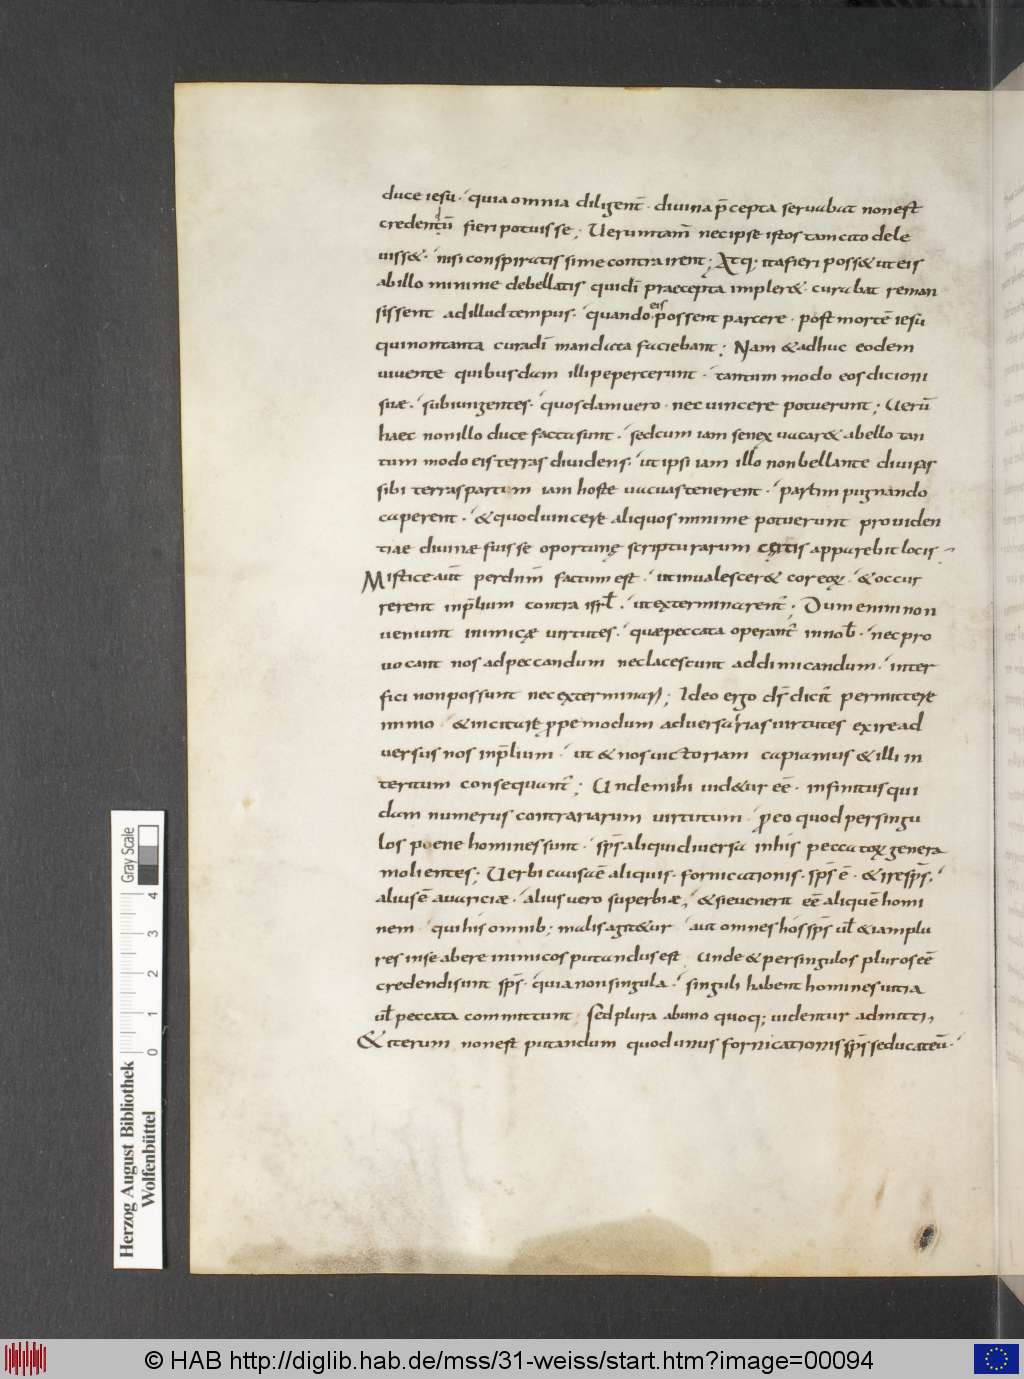 duce iesū · quia omnia diligent̄ · diuina p̄cepta seruabat non est
credentū fieri potuisse ; Uerumtam̄ nec ipse istos tam cito dele
uiss& · nisi conspiratissime contrairent ; Atq; ita fieri poss& ut eis
ab illo minime debellatis quidē praecepta impler& · curabat reman
sissent ad illud tempus · quando eis possent parcere · post mortē iesū
qui non tanta curā dī mandata faciebant ; Nam & adhuc eodem
uiuente quibusdam illi pepercerunt · tantum modo eos dicioni
suæ · subiungentes · quosdam uero · nec uincere potuerunt ; Uerū
haec non illo duce facta sunt · sed cum iam senex uacar& a bello tan
tum modo eis terras diuidens · ut ipsi iam illo non bellante diuisas
sibi terras partim iam hoste uacuas tenerent · partim pugnando
caperent · & quod uincere aliquos minime potuerunt prouiden
tiae diuinæ fuisse oportunę scripturarum certis apparebit locis ·
Mistice aūt per dnm̄ factum est · ut inualescer& cor eoꝝ · & occur
rerent in p̄lium contra isrl̄ · ut exterminarent̄ ; Dum enim non
ueniunt inimicæ uirtutes · quæ peccata operant̄ in nob̄ · nec pro
uocant nos ad peccandum nec lacescunt ad dimicandum · inter
fici non possunt nec exterminari ; Ideo ergo ds̄ dicit̄ permittere
immo · & incitare ꝓpemodum aduersarias uirtutes exire ad
uersus nos in p̄lium · ut & nos uictoriam capiamus & illi in
teritum consequant̄ ; Unde mihi uid&ur eē · infinitus qui
dam numerus contrariarum uirtutum · pro eo quod per singu
los poene homines sunt · sps̄ aliqui diuersa in his peccatoꝝ genera
molientes ; Uerbi causa ē aliquis · fornicationis · sps̄ ē · & iræ sps̄ ·
alius ē auariciæ · alius uero superbiæ , & si euenerit eē aliquē homi
nem · qui his omnib; malis agit&ur · aut omnes hos sps̄ ul̄ & iam plu
res in se abere inimicos putandus est · Unde & per singulos plures eē
credendi sunt sps̄ · quia non singula · singuli habent homines uitia
ul̄ peccata committunt ; sed plura ab uno quoq; uidentur admitti ,
& iterum non est putandum quod unus fornicationis sps̄ seducat eū ·
Herzog August Bibliothek
Wolfenbüttel
0 1 2 3 4
Gray Scale
© HAB http://diglib.hab.de/mss/31-weiss/start.htm?image=00094